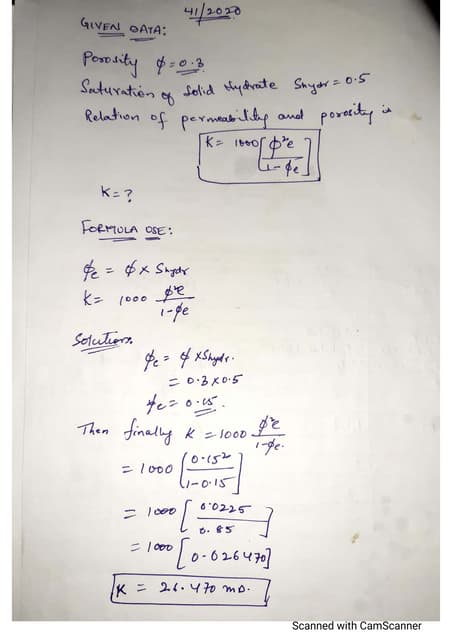 41/2020
GIVEN DATA:
Porosity ϕ = 0.3
Saturation of Solid Hydrate Shydr = 0.5
Relation of permeability and porosity is
K = 1000[ϕ²e / 1-ϕe]
K = ?
FORMULA USE:
ϕe = ϕ × Shydr
K = 1000 ϕ²e / 1-ϕe
Solution:
ϕe = ϕ × Shydr.
= 0.3 × 0.5
ϕe = 0.15.
Then finally K = 1000 ϕ²e / 1-ϕe.
= 1000 [0.15² / 1-0.15]
= 1000 [0.0225 / 0.85]
= 1000 [0.026470]
K = 26.470 mD.
Scanned with CamScanner